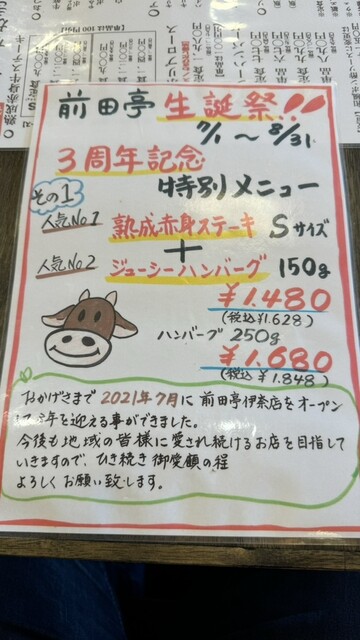 前田亭 生誕祭!!
7/1 〜 8/31
3周年記念
特別メニュー
その1
人気No1 熟成赤身ステーキ Sサイズ
+
人気No2 ジューシーハンバーグ 150g
¥1.480
(税込¥1.628)
ハンバーグ 250g
¥1.680
(税込¥1.848)
おかげさまで 2021年7月に 前田亭伊奈店をオープン
して3年を迎える事ができました。
今後も地域の皆様に愛され続けるお店を目指して
いきますので、ひき続き御愛顧の程
よろしくお願い致します。